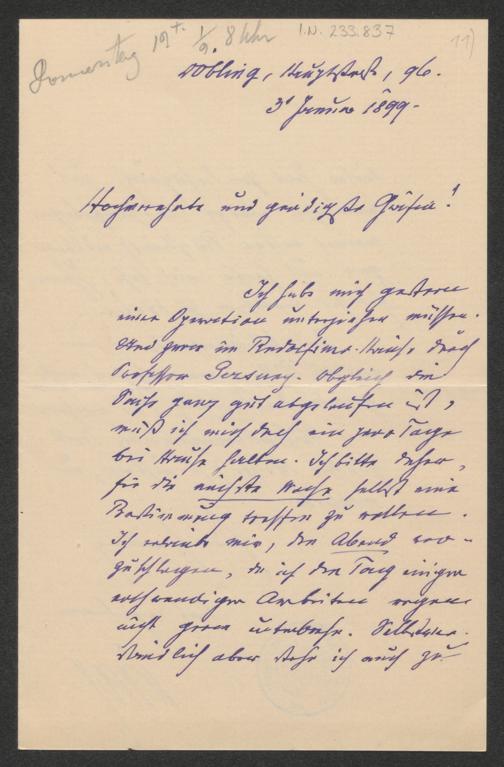 Donnerstag 19t 1/9. 8 Uhr I.N. 233.837 11)
Döbling, Hauptstraße, 96.
3t Januar 1899.
Hochverehrte und gnädigste Gräfin!
Ich habe mich gestern
einer Operation unterziehen müssen.
Und zwar im Rudolfiner-Hause durch
Professor Gersuny. Obgleich die
Sache ganz gut abgelaufen ist,
muß ich mich doch ein paar Tage
bei Hause halten. Ich bitte daher,
für die nächste Woche selbst eine
Bestimmung treffen zu wollen.
Ich erlaube mir, den Abend vor-
zuschlagen, da ich den Tag einiger
nothwendiger Arbeiten wegen
nicht gern unterbreche. Selbstver-
ständlich aber stehe ich auch zu